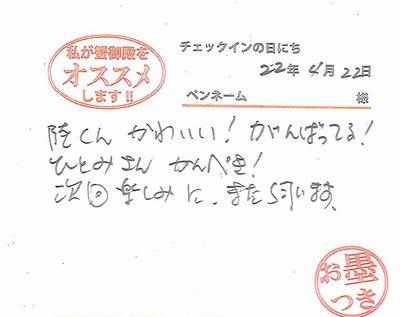 私が蟹御殿を
オススメ
します!!
チェックインの日にち
22年 4月 22日
ペンネーム 様
陸くん かわいい! がんばってる!
ひとみさん かんぺき!
次回楽しみに、また伺います。
お墨
つき